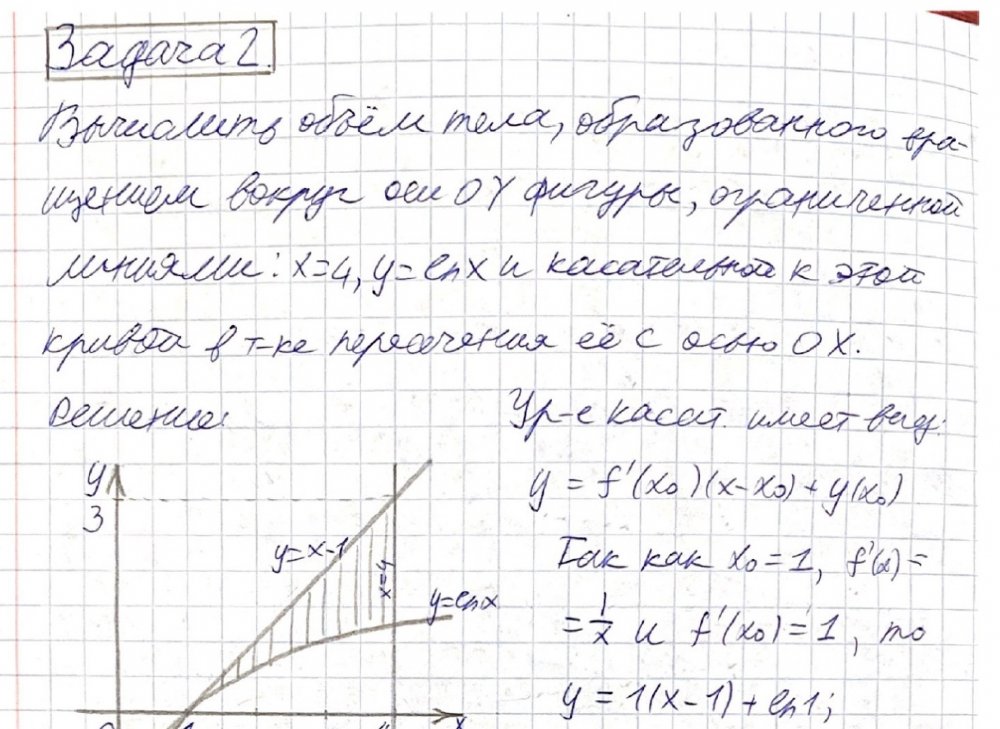 Задача 2.
Вычислить объём тела, образованного вра-
щением вокруг оси OY фигуры, ограниченной
линиями: x=4, y=ln x и касательной к этой
кривой в т-ке пересечения её с осью OX.
Решение:
Ур-е касат. имеет вид:
y = f'(x₀)(x-x₀)+y(x₀)
Так как x₀=1, f'(x)=
=1/x и f'(x₀)=1, то
y = 1(x-1)+ln1;
y
3
y=x-1
x=4
y=ln x
x